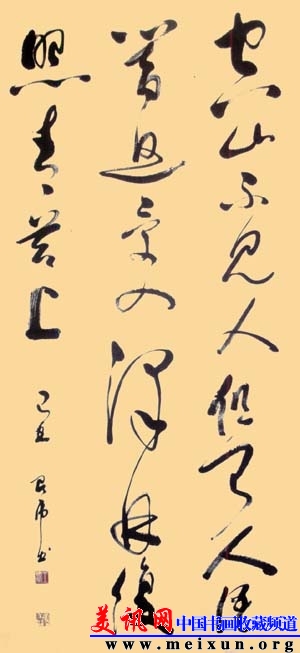 空山不見人但聞人語
響返景入深林復
照青苔上
己丑
書
美讯网 中国书画收藏频道
www.meixun.org